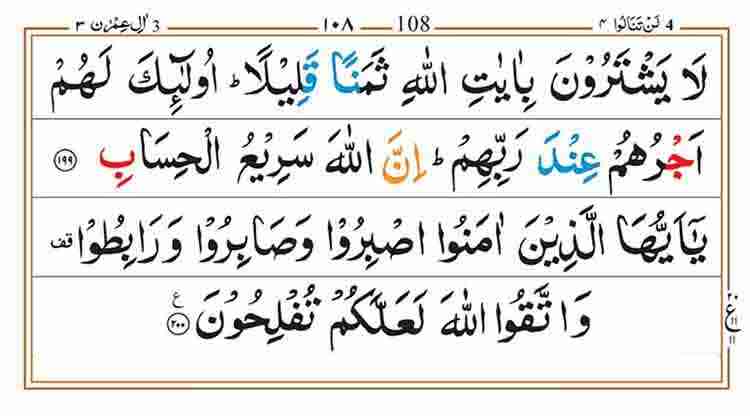 4 لَنْ تَنَالُوا ٤ 108 ١٠٨ 3 اٰلِ عِمْرٰن ٣
لَا يَشْتَرُوْنَ بِاٰيٰتِ اللّٰهِ ثَمَنًا قَلِيْلًا ؕ اُولٰٓئِكَ لَهُمْ
اَجْرُهُمْ عِنْدَ رَبِّهِمْ ؕ اِنَّ اللّٰهَ سَرِيْعُ الْحِسَابِ ﴿١٩٩﴾
يٰۤاَيُّهَا الَّذِيْنَ اٰمَنُوا اصْبِرُوْا وَصَابِرُوْا وَرَابِطُوْا قف
وَاتَّقُوا اللّٰهَ لَعَلَّكُمْ تُفْلِحُوْنَ ﴿٢٠٠﴾ ع
٢٠
ع
١١
١١